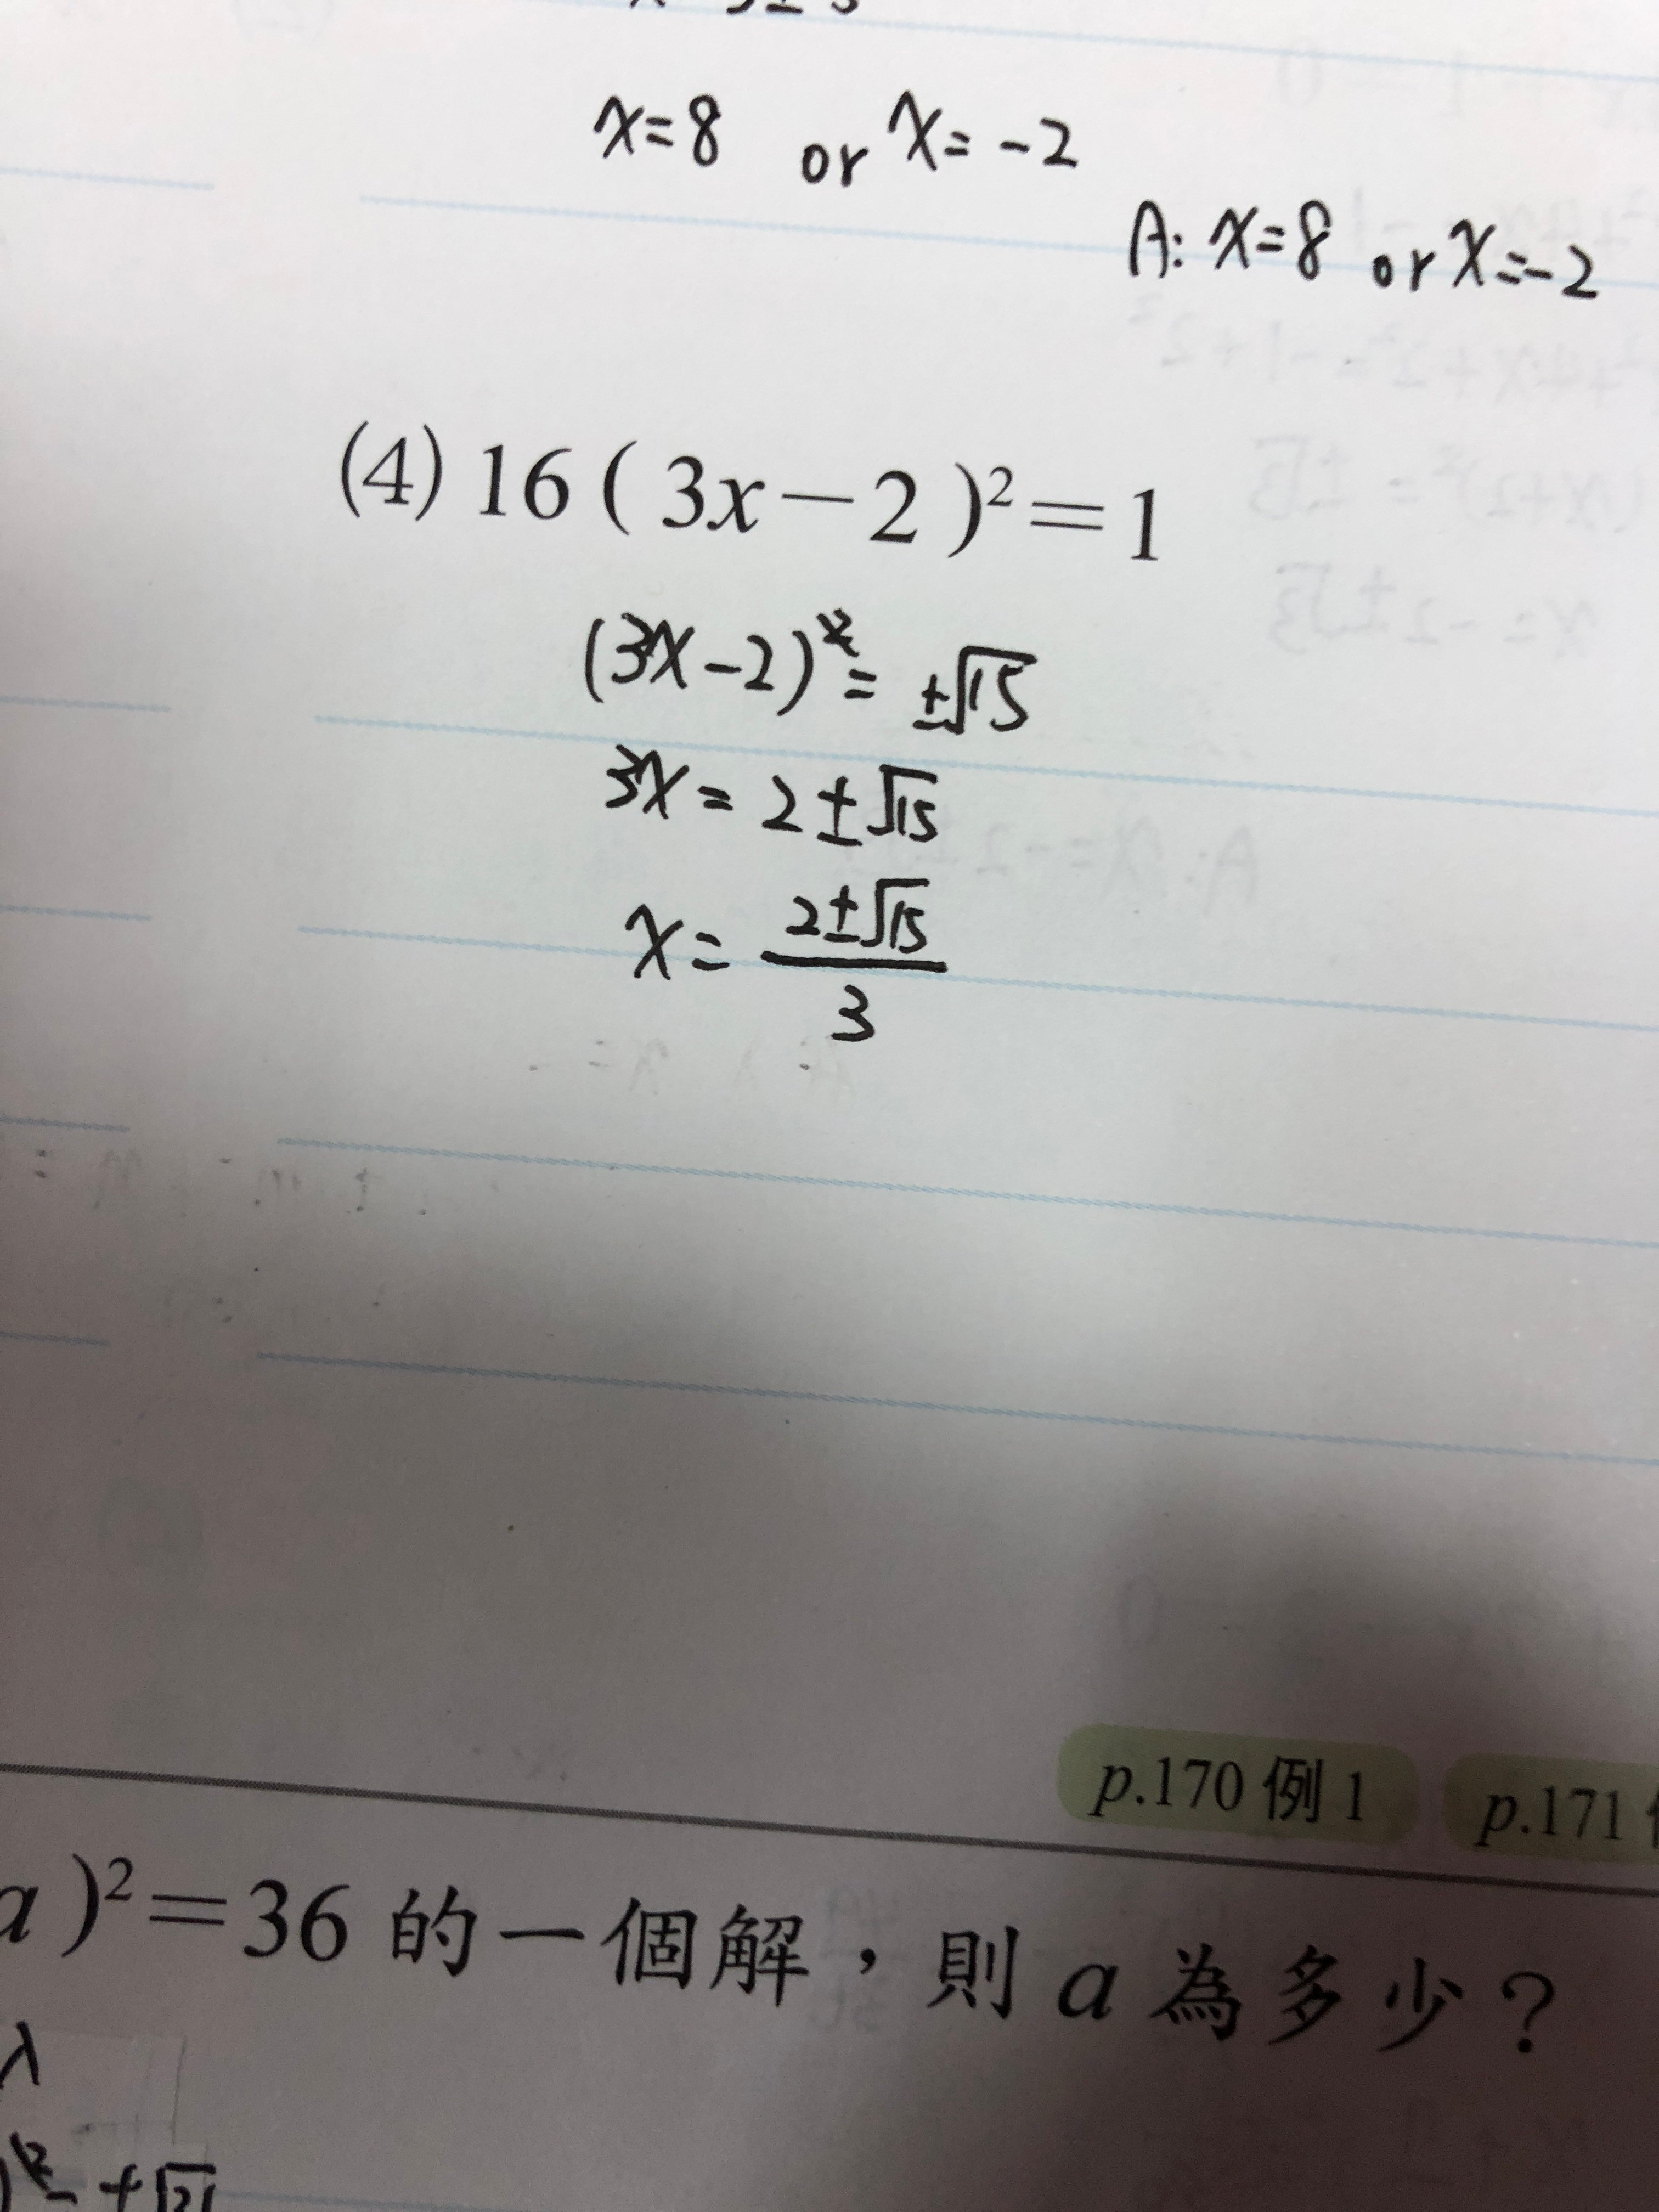 x=8 or x=-2
A: x=8 or x=-2
(4) 16 ( 3x－2 )²＝1
(3x-2) = ±√15
3x = 2±√15
x = (2±√15)/3
p.170 例 1 p.171
a )²＝36 的一個解，則 a 為多少？